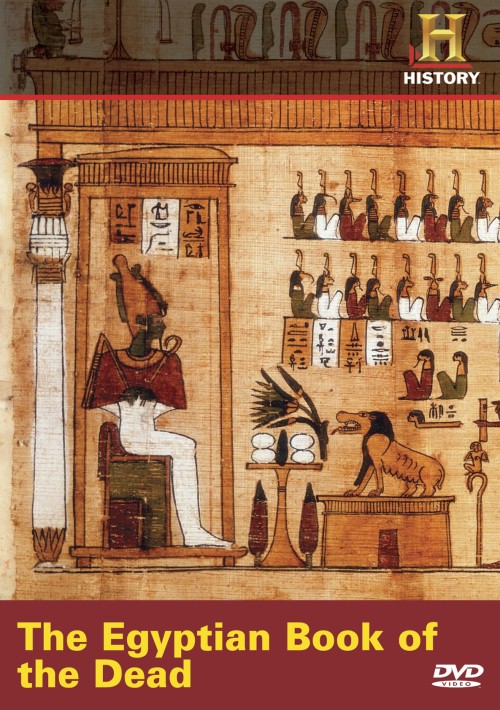 H
HISTORY
The Egyptian Book of
the Dead
DVD
VIDEO